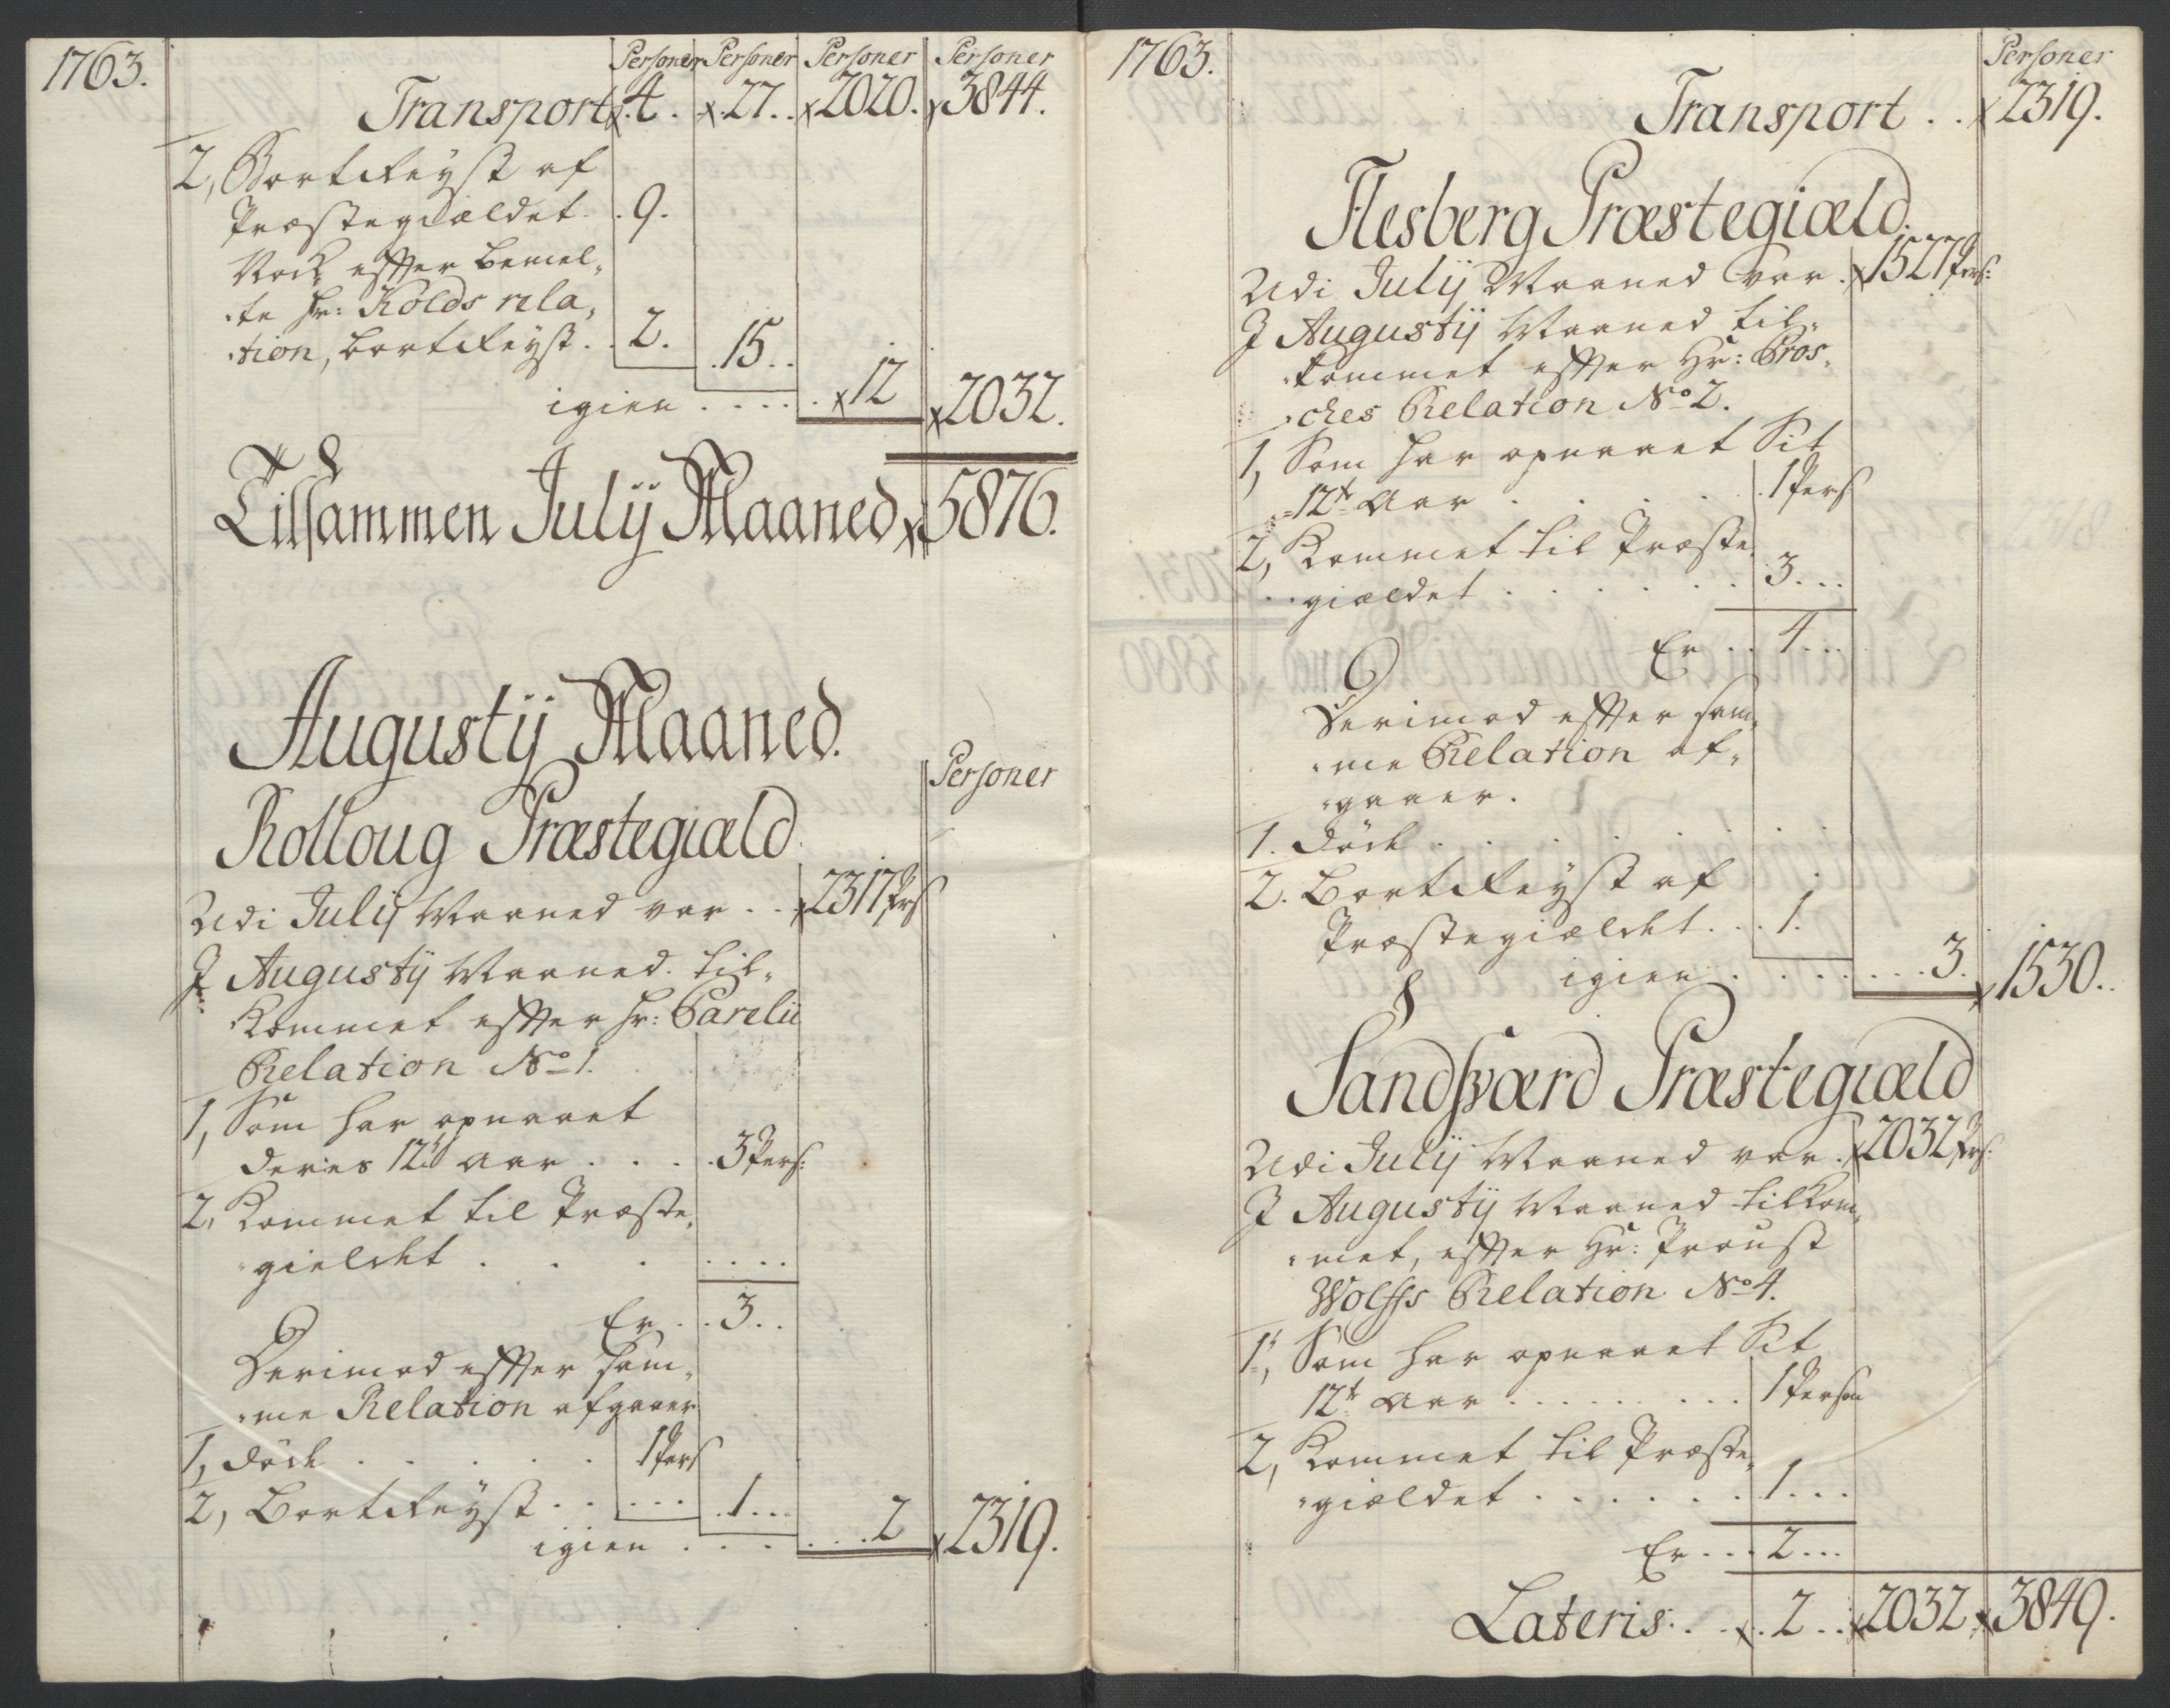 1763.
Personer Personer Personer Personer
Transport x4. x27.. x2020. x3844.
2, Bortreyst af
Præstegiældet . . 9.
Nock efter bemel„
„te Hr: Kolds rela„
„tion, bortreyst . . 2. . 15 . .
igien . . . . . x12 x2032.
Tilsammen Julij Maaned x5876.
Augustij Maaned.
Personer
Rolloug Præstegiæld.
Udi Julij Maaned var . . x2317 Prs
I Augustij Maaned til„
kommet efter Hr: Parelii
Relation No 1.
1, Som har opnaaet
deres 12te Aar . . . . 3 Pers:
2, Kommet til Præste„
„gieldet . . . . . . .
Er . . 3 . .
Derimod efter sam„
„me Relation afgaaer
1, Döde . . . . . 1 Pers
2, Bortreyst . . . . . . 1 . . .
igien . . . . . . . 2 x2319.
1763.
Personer
Transport . . x2319.
Flesberg Præstegiæld.
Udi Julij Maaned var . x1527 Pers:
I Augustij Maaned til„
„kommet efter Hr: Bros„
„ches Relation No 2.
1, Som har opnaaet Sit
12te Aar . . . . . 1 Pers
2, Kommet til Præste„
„giældet . . . . . . 3 . . .
Er . . 4 . . .
Derimod efter sam„
„me Relation af„
„gaaer.
1. Döde . . . . . . .
2. Bortreyst af
Præstegiældet . . . 1.
igien . . . . . . . . 3. x1530. .
Sandsværd Præstegiæld
Udi Julij Maaned var . x2032 Prs:
I Augustij Maaned tilkom„
„met, efter Hr: Proust
Wolffs Relation No 4.
1, Som har opnaaet Sit
12te Aar . . . . . . . . 1 Person
2, Kommet til Præste„
„giældet . . . . . . . 1 . . .
Er . . . 2 . . .
Lateris . . . x. 2 . . x2032 x3849.